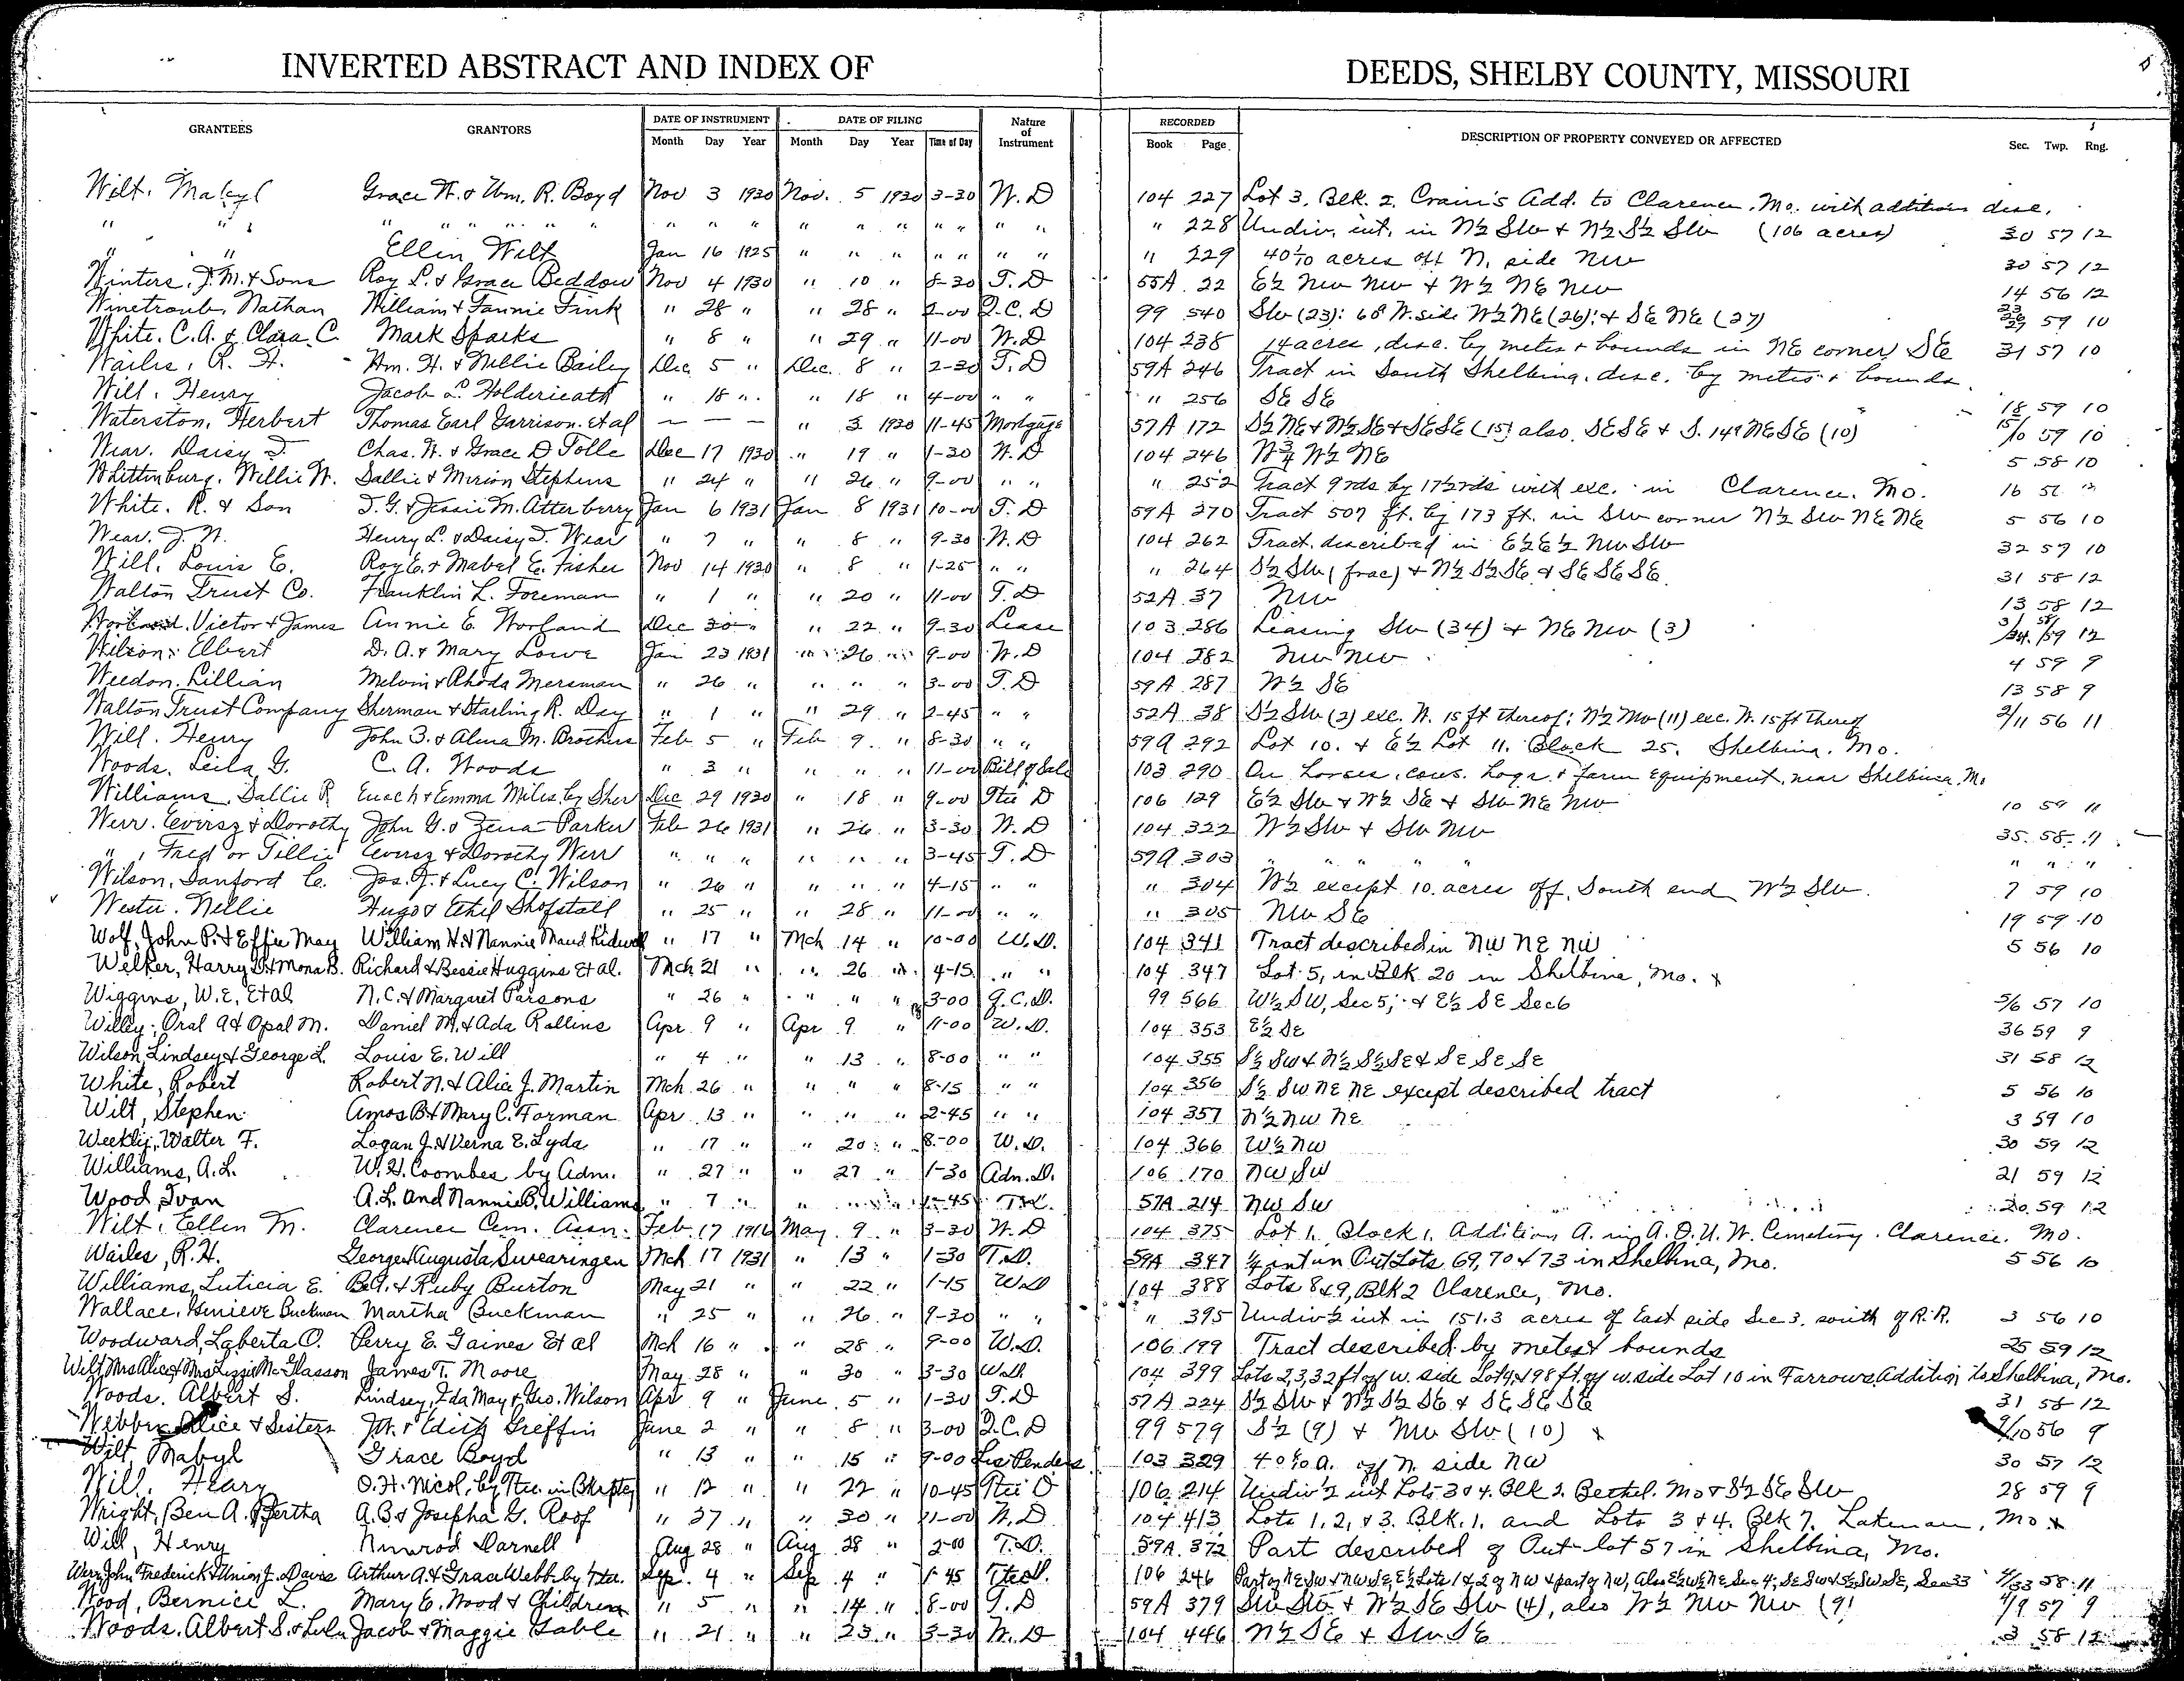 INVERTED ABSTRACT AND INDEX OF DEEDS, SHELBY COUNTY, MISSOURI
GRANTEES GRANTORS DATE OF INSTRUMENT Month Day Year DATE OF FILING Month Day Year Time of Day Nature of Instrument RECORDED Book Page DESCRIPTION OF PROPERTY CONVEYED OR AFFECTED Sec. Twp. Rng.
Wilt, Mabyl Grace W. & Wm. R. Boyd Nov 3 1930 Nov. 5 1930 3-30 W.D 104 227 Lot 3, Blk. 2, Crain's Add. to Clarence, Mo. with additions desc.
" " " " " " " " " " " " " " " " " " 228 Undiv. int. in N½ SW & N½ S½ SW (106 acres) 30 57 12
" " Ellin Wilt Jan 16 1925 " " " " " " " " 229 40 1/10 acres off N. side NW 30 57 12
Winters, J.M. & Sons Roy L. & Grace Beddow Nov 4 1930 " 10 " 8-30 T.D 55A 22 E½ NW NW & W½ NE NW 14 56 12
Winetroub, Nathan William & Fannie Fink " 28 " " 28 " 2-00 Q.C.D 99 540 SW (23): 60 W. side W½ NE (26): & SE NE (27) 23 26 27 59 10
White, C.A. & Clara C. Mark Sparks " 8 " " 29 " 11-00 W.D 104 238 14 acres, desc. by metes & bounds in NE corner SE 31 57 10
Wailes, R. H. Wm. H. & Nellie Bailey Dec 5 " Dec. 8 " 2-30 T.D 59A 246 Tract in South Shelbina, desc. by metes & bounds.
Will, Henry Jacob L. Holderieath " 18 " " 18 " 4-00 " " " 256 SE SE 18 59 10
Waterston, Herbert Thomas Earl Garrison et al — — — " 3 1930 11-45 Mortgage 57A 172 S½ NE & N½ SE & SE SE (15) also SE SE & S. 14 NE SE (10) 15/10 59 10
Wear, Daisy J. Chas. W. & Grace D Tolle Dec 17 1930 " 19 " 1-30 W.D 104 246 W¾ W½ NE 5 58 10
Whittinburg, Willie W. Sallie & Mirion Stephens " 24 " " 26 " 9-00 " " " 252 Tract 9 rds by 17½ rds with exc. in Clarence, Mo. 16 12
White, R. & Son J.G. & Jessie M. Atterberry Jan 6 1931 Jan 8 1931 10-00 T.D 59A 270 Tract 507 ft. by 173 ft. in SW corner N½ SW NE NE 5 56 10
Wear, J. W. Henry L. & Daisy J. Wear " 7 " " 8 " 9-30 W.D 104 262 Tract described in E½ E½ NW SW 32 57 10
Will, Louis E. Roy E. & Mabel E. Fisher Nov 14 1930 " 8 " 1-25 " " " 264 S½ SW (frac) & N½ S½ SE & SE SE SE 31 58 12
Walton Trust Co. Franklin L. Foreman " 1 " " 20 " 11-00 T.D 52A 37 NW 13 58 12
Worland, Victor & James Annie E. Worland Dec 30 " " 22 " 9-30 Lease 103 286 Leasing SW (34) & NE NW (3) 3/34 58/59 12
Wilson, Elbert D. A. & Mary Lowe Jan 23 1931 " 26 " 9-00 W.D 104 282 NW NW 4 59 9
Weedon, Lillian Melvin & Rhoda Mersman " 26 " " " " 3-00 T.D 59A 287 W½ SE 13 58 9
Walton Trust Company Sherman & Starling R. Day " 1 " " 29 " 2-45 " " 52A 38 S½ SW (2) exc. W. 15 ft thereof; N½ NW (11) exc. W. 15 ft thereof 2/11 56 11
Will, Henry John B. & Alma M. Brothers Feb 5 " Feb 9 " 8-30 " " 59A 292 Lot 10, & E½ Lot 11, Block 25, Shelbina, Mo.
Woods, Leila G. C. A. Woods " 3 " " " " 11-00 Bill of Sale 103 290 On horses, cows, hogs, & farm equipment, near Shelbina, Mo
Williams, Sallie R. Enoch & Emma Miles, by Sher Dec 29 1930 " 18 " 9-00 Ttee D 106 129 E½ SW & W½ SE & SW NE NW 10 59 11
Werr, Eversz & Dorothy John G. & Zena Parker Feb 26 1931 " 26 " 3-30 W.D 104 322 W½ SW & SW NW 35 58 11
" , Fred or Tillie Eversz & Dorothy Werr " " " " " " 3-45 T.D 59A 303 " " " " " " "
Wilson, Sanford C. Jas. J. & Lucy C. Wilson " 26 " " " " 4-15 " " " 304 W½ except 10 acres off South end W½ SW. 7 59 10
Wester, Nellie Hugo & Ethel Shofstall " 25 " " 28 " 11-00 " " " 305 NW SE 19 59 10
Wolf, John P. & Effie May William H. & Nannie Maud Kidwell " 17 " Mch 14 " 10-00 W.D. 104 341 Tract described in NW NE NW 5 56 10
Welker, Harry D. & Mona B. Richard & Bessie Huggins Et al. Mch 21 " " 26 " 4-15 " " 104 347 Lot 5, in Blk 20 in Shelbina, Mo. x
Wiggins, W.E. Et al N.C. & Margaret Parsons " 26 " " " " 3-00 Q.C.D. 99 566 W½ SW, Sec 5; & E½ SE Sec 6 5/6 57 10
Willey, Oral A & Opal M. Daniel M. & Ada Rollins Apr 9 " Apr 9 " 11-00 W.D. 104 353 E½ SE 36 59 9
Wilson, Lindsey & George L. Louis E. Will " 4 " " 13 " 8-00 " " 104 355 S½ SW & N½ S½ SE & SE SE SE 31 58 12
White, Robert Robert N. & Alice J. Martin Mch 26 " " " " 8-15 " " 104 356 S½ SW NE NE except described tract 5 56 10
Wilt, Stephen Amos B & Mary C. Forman Apr 13 " " " " 2-45 " " 104 357 N½ NW NE 3 59 10
Weekly, Walter F. Logan J. & Verna E. Lyda " 17 " " 20 " 8-00 W.D. 104 366 W½ NW 30 59 12
Williams, A.L. W.H. Coombes by Adm. " 27 " " 27 " 1-30 Adn.D. 106 170 NW SW 21 59 12
Wood, Ivan A.L. and Nannie B. Williams " 7 " " " " 1-45 57A 214 NW SW 20 59 12
Wilt, Ellen M. Clarence Cem. Assn. Feb. 17 1916 May 9 " 3-30 W.D 104 375 Lot 1, Block 1, Addition A. in A.O.U.W. Cemetery, Clarence, Mo.
Wailes, R.H. George & Augusta Swearingen Mch 17 1931 " 13 " 1-30 T.D. 59A 347 ¼ int in Out Lots 69, 70 & 73 in Shelbina, Mo. 5 56 10
Williams, Luticia E. B.A. & Ruby Burton May 21 " " 22 " 1-15 W.D 104 388 Lots 8 & 9, Blk 2 Clarence, Mo.
Wallace, Genieve Buckman Martha Buckman " 25 " " 26 " 9-30 " " " 395 Undiv ½ int in 151.3 acres of East side Sec 3, south of R.R. 3 56 10
Woodward, Laberta O. Perry E. Gaines Et al Mch 16 " " 28 " 9-00 W.D. 106 199 Tract described by metes & bounds 25 59 12
Wilt, Mrs Alice & Mrs Lizzie McGlasson James T. Moore May 28 " " 30 " 3-30 W.D. 104 399 Lots 2, 3, 32 ft of w. side Lot 4, & 98 ft. of w. side Lot 10 in Farrows Addition to Shelbina, Mo.
Woods, Albert S. Lindsey, Ida May & Geo. Wilson Apr 9 " June 5 " 1-30 T.D 57A 224 S½ SW & N½ S½ SE & SE SE SE 31 58 12
Webber, Alice & Sisters & Edith Greffin June 2 " " 8 " 3-00 Q.C.D 99 579 S½ (9) & NW SW (10) x 9/10 56 9
Wilt, Mabyl Grace Boyd " 13 " " 15 " 9-00 Lis Pendens 103 329 40 1/10 a. off N. side NW 30 57 12
Will, Henry O.H. Nicol, by Ttee. in Bkrptcy " 12 " " 22 " 10-45 Ttee D 106 214 Undiv ½ int Lots 3 & 4, Blk 2, Bethel, Mo & S½ SE SW 28 59 9
Wright, Ben A. & Bertha A.B. & Josepha G. Roof " 27 " " 30 " 11-00 W.D 104 413 Lots 1, 2, & 3, Blk. 1, and Lots 3 & 4, Blk 7, Lakenan, Mo x
Will, Henry Nimrod Darnell Aug 28 " Aug 28 " 2-00 T.D. 59A 372 Part described of Out-lot 57 in Shelbina, Mo.
Werr, John Frederick & Union J. Davis Arthur A. & Grace Webb by Ttee. Sep. 4 " Sep 4 " 1-45 Ttee D. 106 246 Part of NE SW & NW SE, E½ Lots 1 & 2 of NW & part of NW, also E½ W½ NE Sec 4; SE SW & S½ SW SE, Sec 33 4/33 58 11
Wood, Bernice L. Mary E. Wood & Children " 5 " " 14 " 8-00 T.D 59A 379 SW SW & W½ SE SW (4), also W½ NW NW (9) 4/9 57 9
Woods, Albert S. & Lula Jacob & Maggie Gable " 21 " " 23 " 3-30 W.D 104 446 N½ SE & SW SE 3 58 12